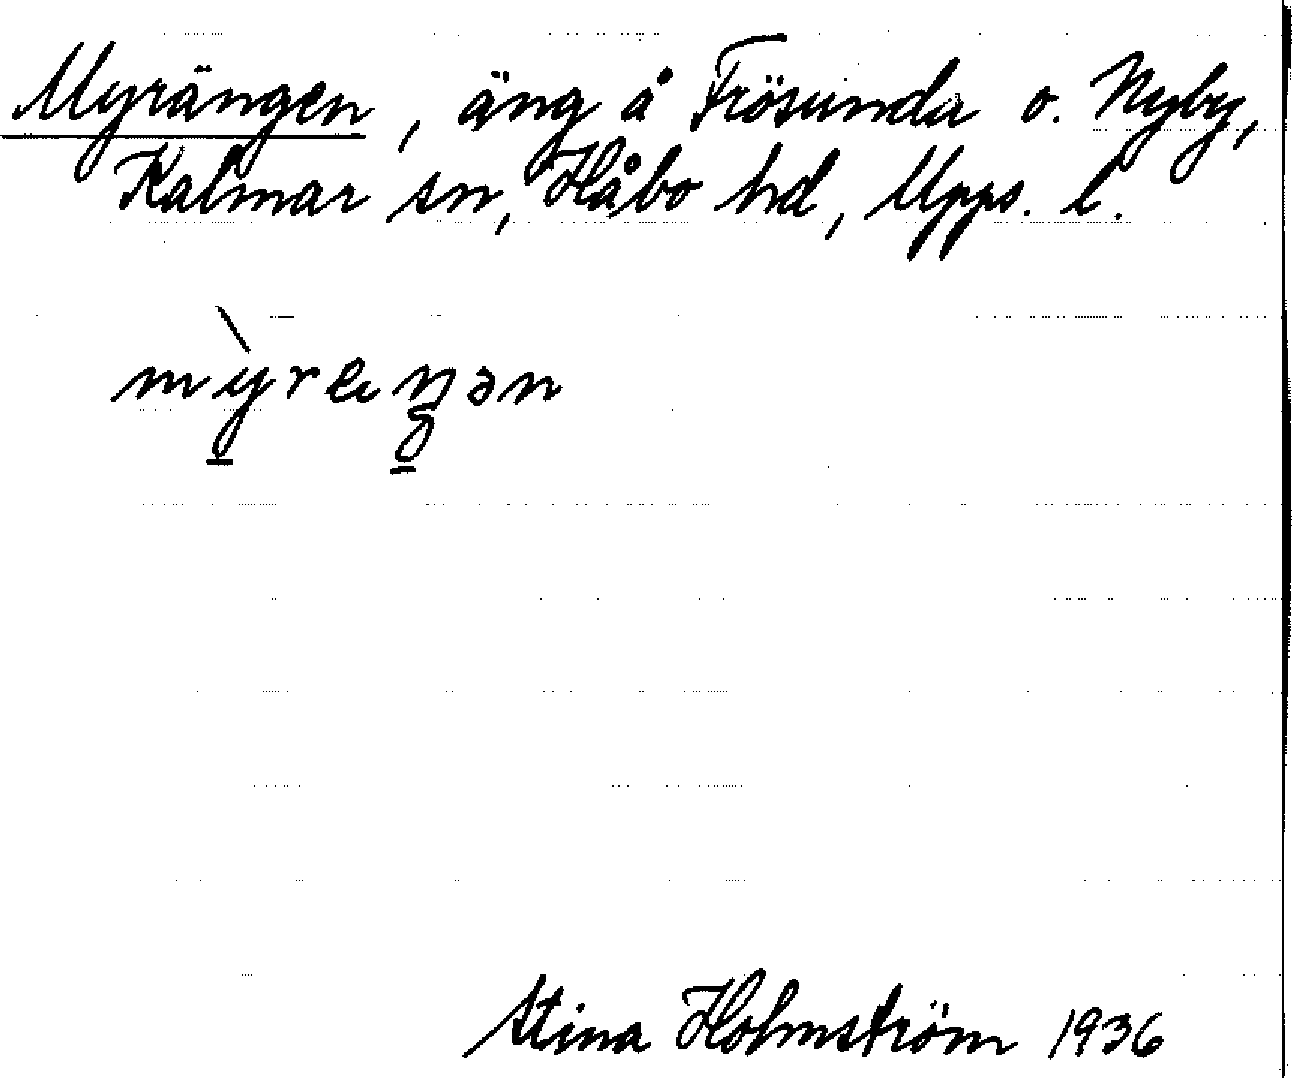 Myrängen, äng å Frösunda o. Nyby,
Kalmar sn, Håbo hd, Upps. l.
mỳreŋən
Stina Holmström 1936